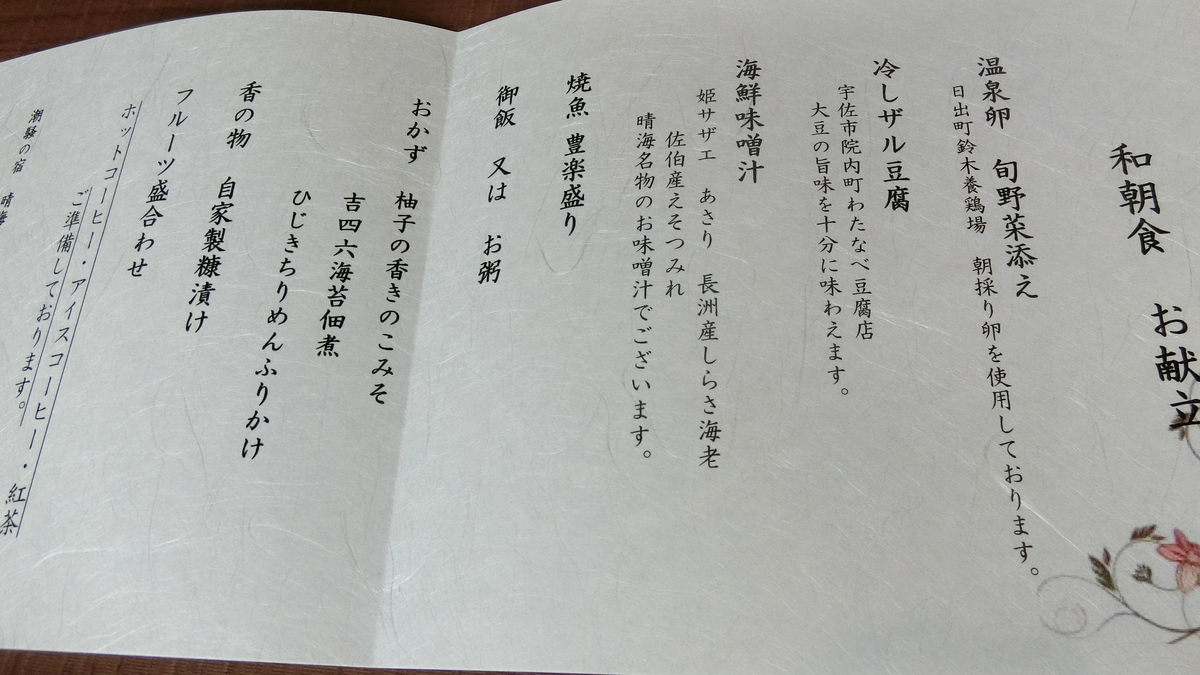 和朝食 お献立
温泉卵 旬野菜添え
日出町鈴木養鶏場 朝採り卵を使用しております。
冷しザル豆腐
宇佐市院内町わたなべ豆腐店
大豆の旨味を十分に味わえます。
海鮮味噌汁
姫サザエ あさり 長洲産しらさ海老
佐伯産えそつみれ
晴海名物のお味噌汁でございます。
焼魚 豊楽盛り
御飯 又は お粥
おかず 柚子の香きのこみそ
吉四六海苔佃煮
ひじきちりめんふりかけ
香の物 自家製糠漬け
フルーツ盛合わせ
ホットコーヒー・アイスコーヒー・紅茶
ご準備しております。
潮騒の宿 晴海